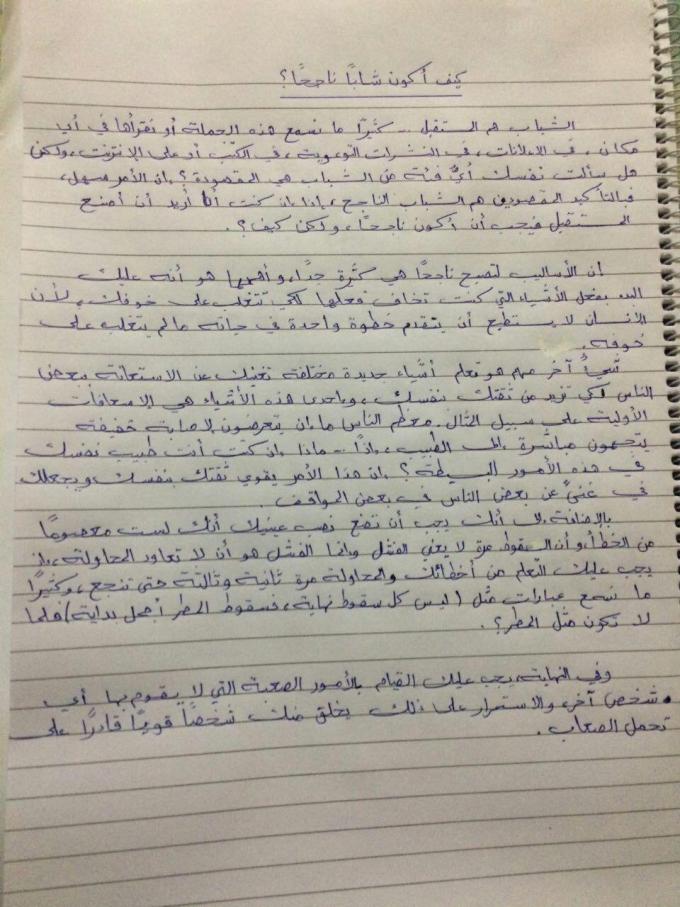 كيف أكون شابًا ناجحًا؟
الشباب هم المستقبل .. كثيرًا ما نسمع هذه الجملة أو نقرأها في أي
مكان، في الاعلانات، في النشرات التوعوية، في الكتب أو على الإنترنت، ولكن
هل سألت نفسك أيُّ فئة من الشباب هي المقصودة؟ إن الأمر سهل،
فبالتأكيد المقصودين هم الشباب الناجح، إذا إن كنت أنا أريد أن أصنع
المستقبل فيجب أن أكون ناجحًا، ولكن كيف؟.
إن الأساليب لتصبح ناجحًا هي كثيرة جدًا، وأهمها هو أنه عليك
البدء بفعل الأشياء التي كنت تخاف فعلها لكي تتغلب على خوفك، لأن
الإنسان لا يستطيع أن يتقدم خطوة واحدة في حياته مالم يتغلب على
خوفه.
شيءٌ آخر مهم هو تعلم أشياء جديدة مختلفة تغنيك عن الاستعانة ببعض
الناس لكي تزيد من ثقتك بنفسك، وإحدى هذه الأشياء هي الإسعافات
الأولية على سبيل المثال. معظم الناس ما إن يتعرضون لإصابة خفيفة
يتجهون مباشرة إلى الطبيب، إذًا .. ماذا إن كنت أنت طبيب نفسك
في هذه الأمور البسيطة؟ إن هذا الأمر يقوي ثقتك بنفسك ويجعلك
في غنىً عن بعض الناس في بعض المواقف.
بالإضافة إلى أنك يجب أن تضع نصب عينيك أنك لست معصومًا
من الخطأ، وأن السقوط مرة لا يعني الفشل وإنما الفشل هو أن لا تعاود المحاولة، إذ
يجب عليك التعلم من أخطائك والمحاولة مرة ثانية وثالثة حتى تنجح، وكثيرًا
ما نسمع عبارات مثل (ليس كل سقوط نهاية، فسقوط المطر أجمل بداية) فلما
لا تكون مثل المطر؟.
وفي النهاية، يجب عليك القيام بالأمور الصعبة التي لا يقوم بها أي
شخص آخر، والاستمرار على ذلك يخلق منك شخصًا قويًا قادرًا على
تحمل الصعاب.